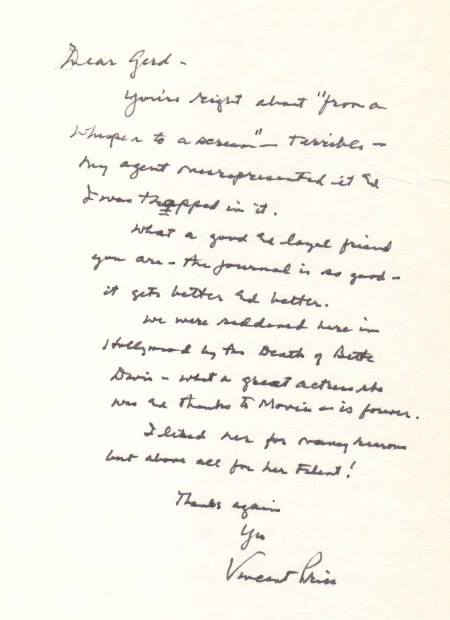 Dear Gerd -
You're right about "from a
whisper to a scream" - terrible -
my agent misrepresented it &
I was trapped in it.
What a good & loyal friend
you are - the journal is so good -
it gets better & better.
We were saddened here in
Hollywood by the Death of Bette
Davis - what a great actress she
was & thanks to Movies - is forever.
I liked her for many reasons
but above all for her talent!
Thanks again
Yrs
Vincent Price